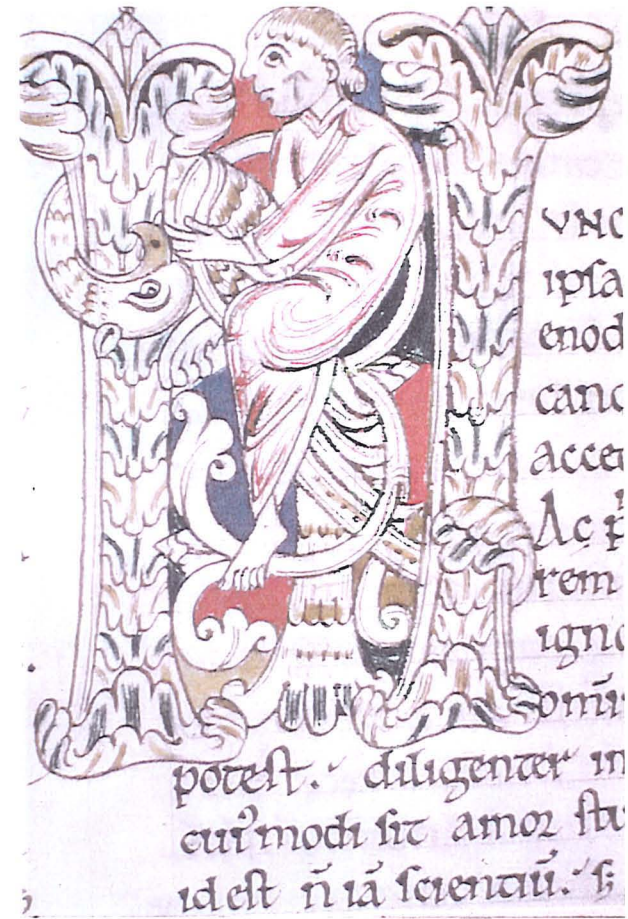 VNC
ipsa
enod
canc
acce
Ac p̄
rem
igno
om̄i
potest. diligenter in
cuiꝰmodi sit amor stu
id est n̄ iā scientiū. s;